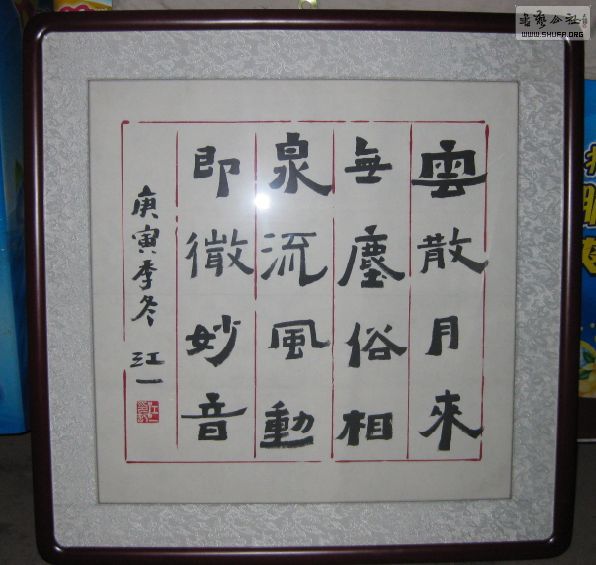 雲散月來
無塵俗相
泉流風動
即微妙音
庚寅季冬 江一
書藝公社
WWW.SHUFA.ORG